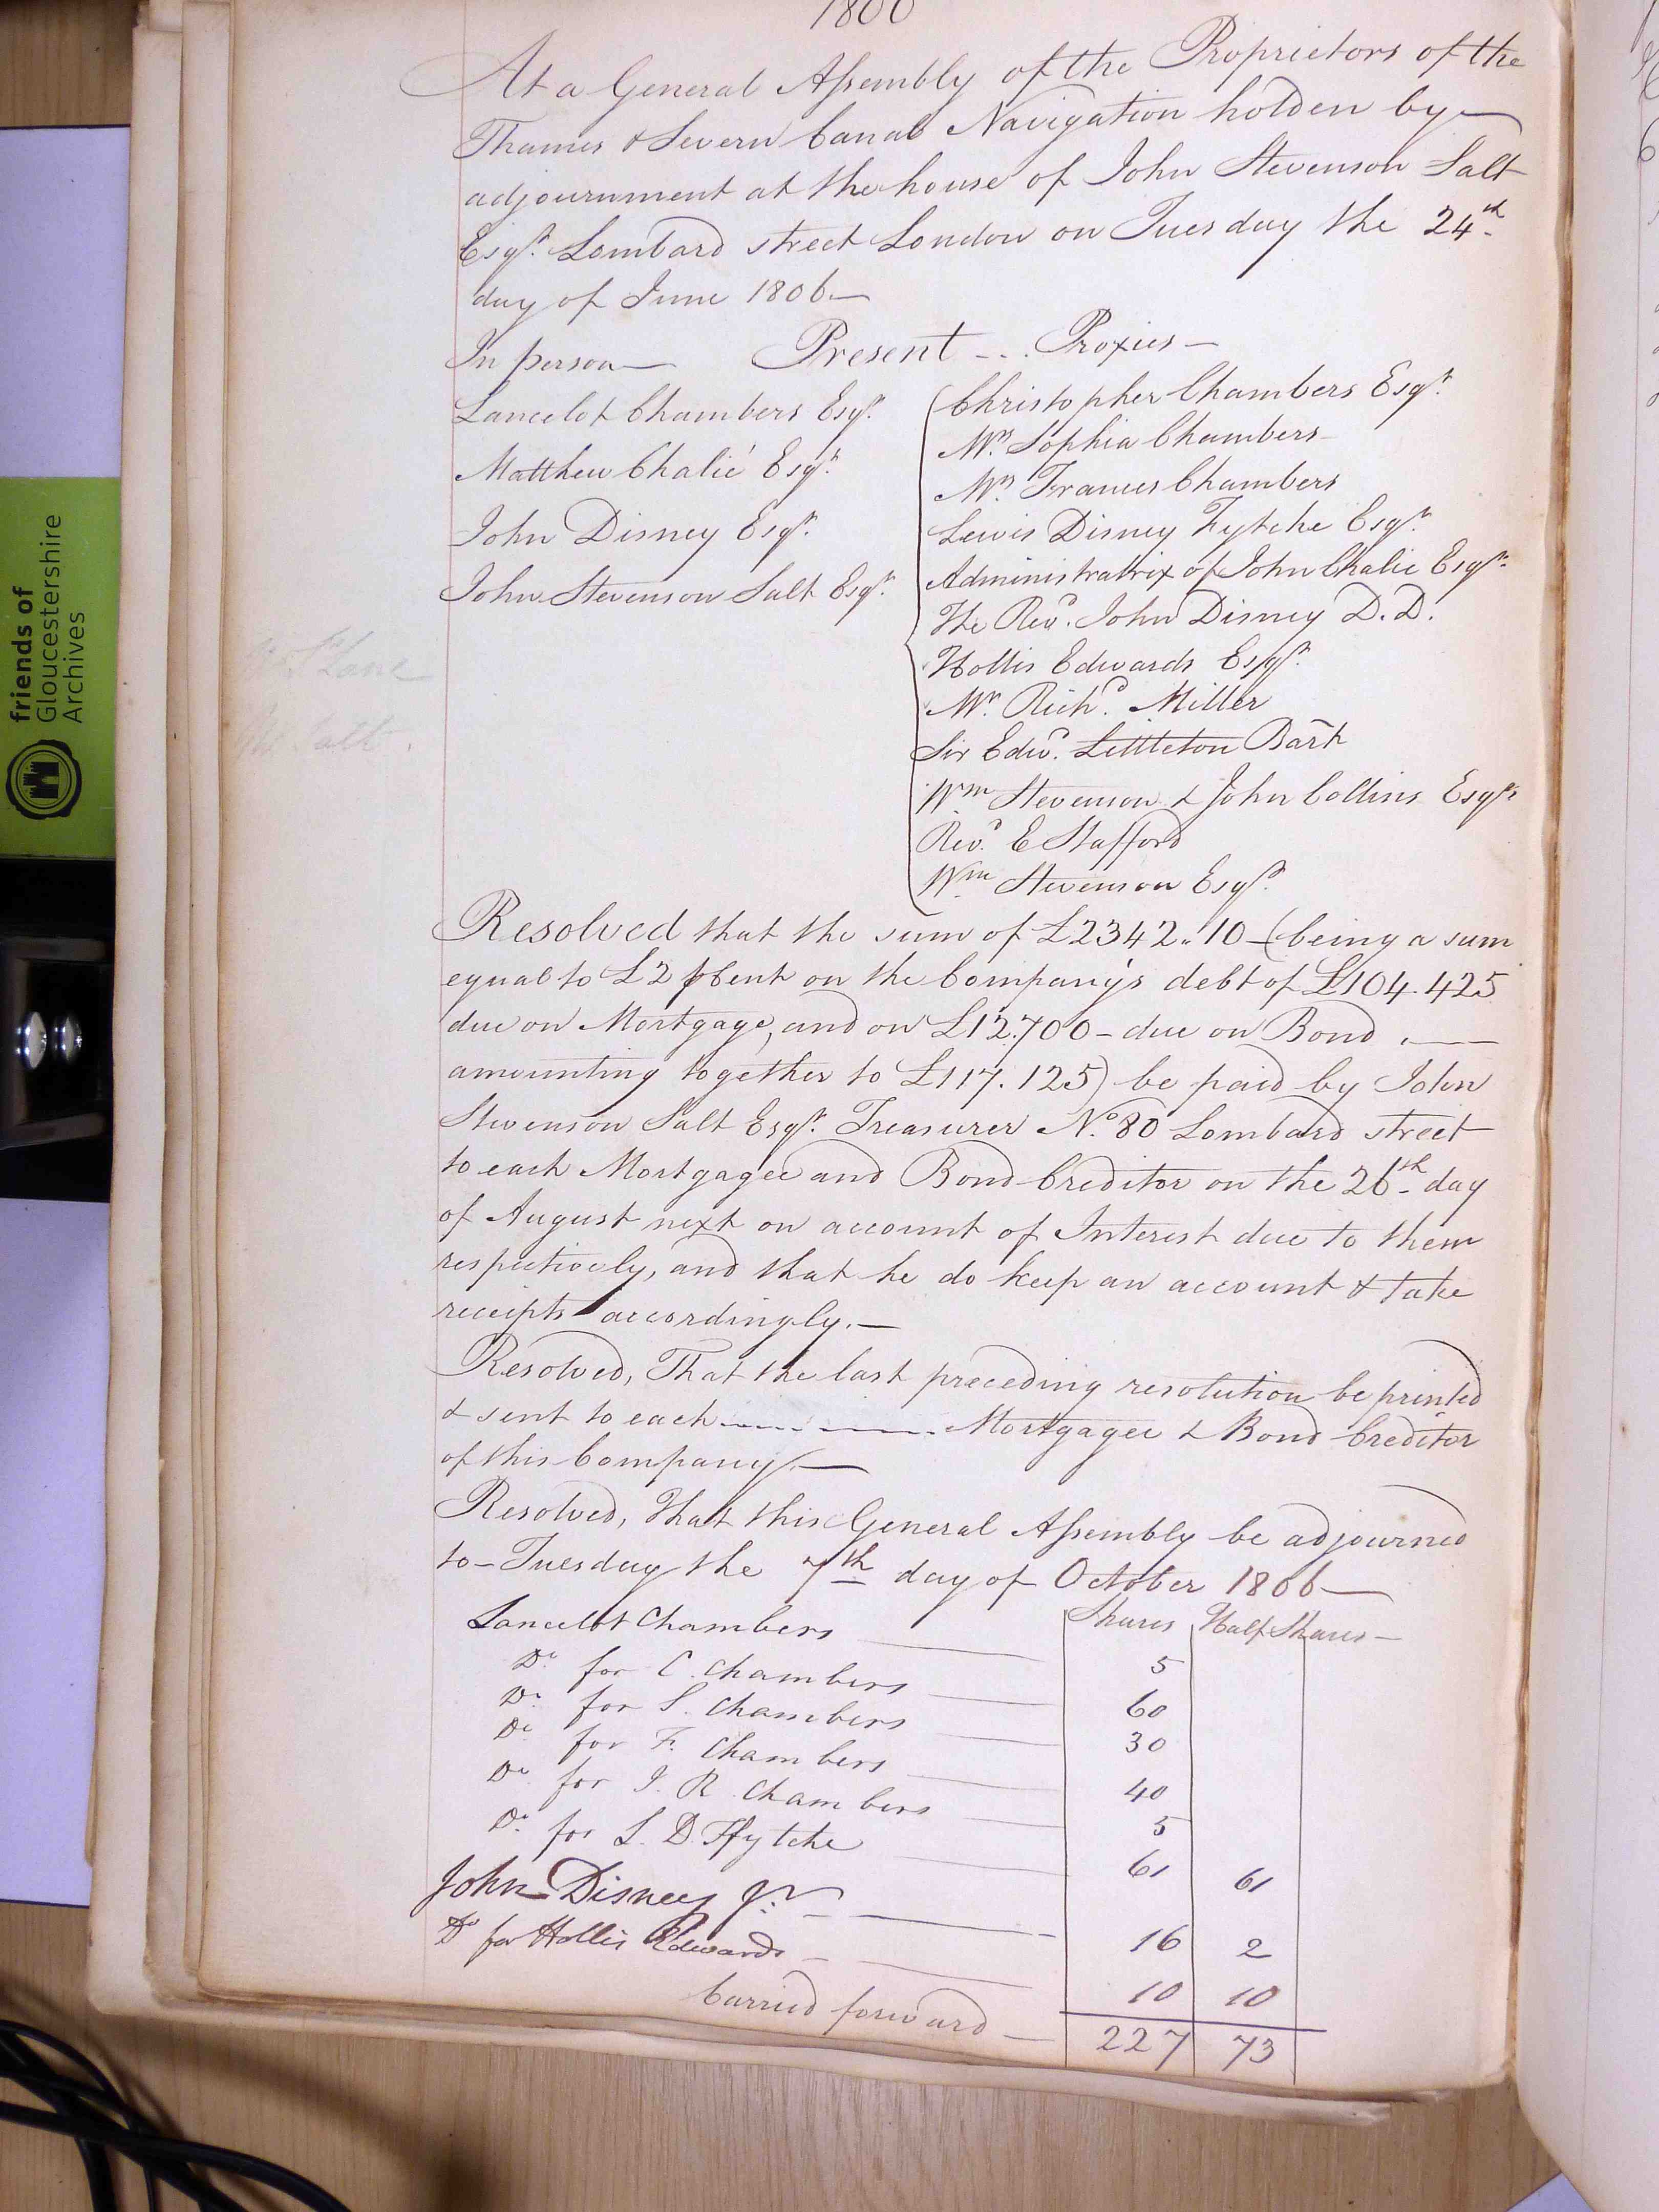 At a General Assembly of the Proprietors of the
Thames & Severn Canal Navigation holden by
adjournment at the house of John Stevenson Salt
Esqr. Lombard street London on Tuesday the 24th
day of June 1806—
In person— Present - .. Proxies —
Lancelot Chambers Esqr.
Matthew Chalié Esqr.
John Disney Esqr.
John Stevenson Salt Esqr.
Christopher Chambers Esqr.
Mrs. Sophia Chambers—
Mrs. Frances Chambers
Lewis Disney Fytche Esqr.
Administratrix of John Chalie Esqr.
The Revd. John Disney D.D.
Hollis Edwards Esqr.
Mr. Richd. Miller
Sir Edwd. Littleton Bart
Wm Stevenson & John Collins Esqrs
Revd. E Stafford
Wm Stevenson Esqr.
Lane
Salt.
Resolved that the sum of £2342..10—(being a sum
equal to £2 p Cent on the Company's debt of £104.425
due on Mortgage, and on £12.700— due on Bond ,——
amounting together to £117.125) be paid by John
Stevenson Salt Esqr. Treasurer No. 80 Lombard street
to each Mortgagee and Bond Creditor on the 26th day
of August next on account of Interest due to them
respectively, and that he do keep an account & take
receipts accordingly.—
Resolved, That the last preceding resolution be printed
& sent to each ——— Mortgagee & Bond Creditor
of this Company.—
Resolved, That this General Assembly be adjourned
to— Tuesday the 7th day of October 1806—
Shares Half Shares—
Lancelot Chambers 5
Do. for C. Chambers 60
Do. for S. Chambers 30
Do. for F. Chambers 40
Do. for J. R. Chambers 5
Do. for L. D. Ffytche 61 61
John Disney Jr. 16 2
Do for Hollis Edwards 10 10
Carried forward — 227 73
friends of
Gloucestershire
Archives